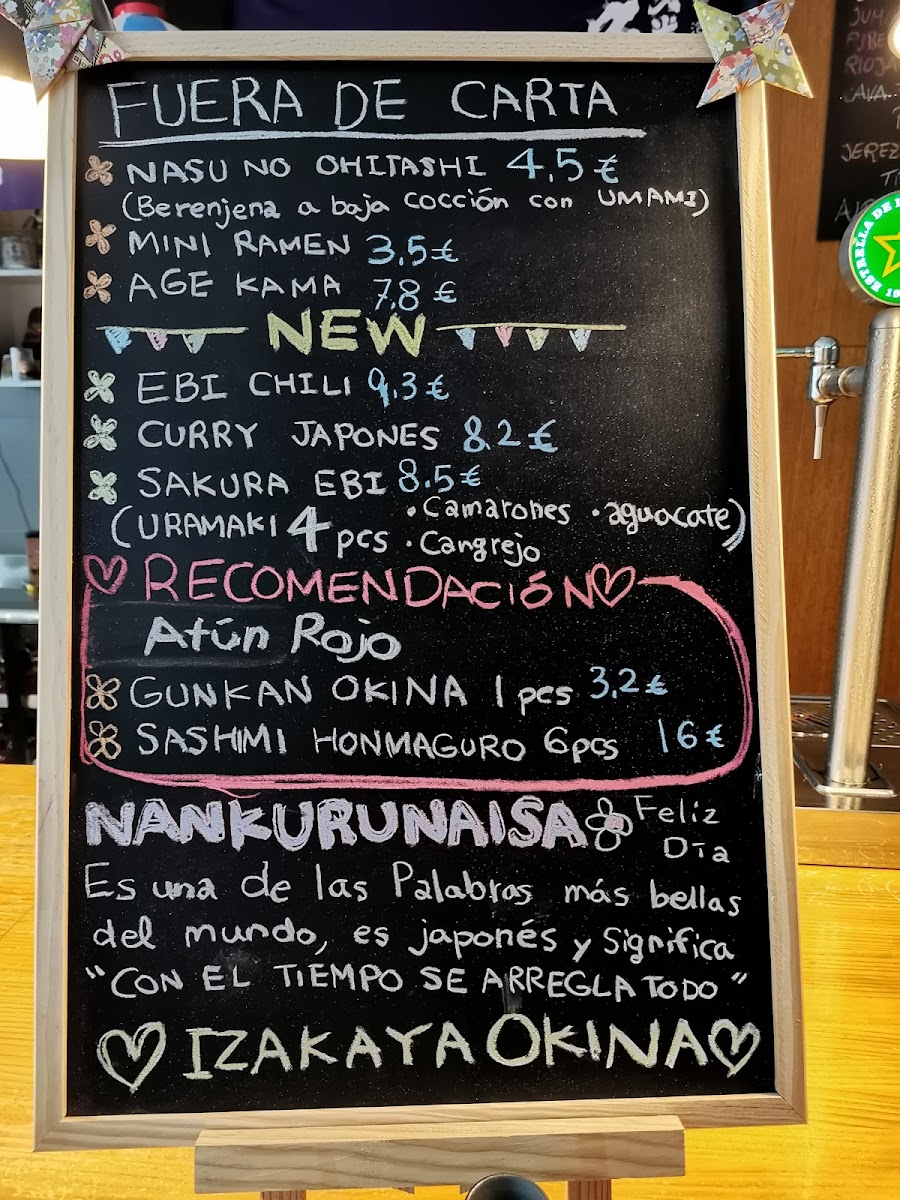 FUERA DE CARTA
NASU NO OHITASHI 4,5€
(Berenjena a baja cocción con UMAMI)
MINI RAMEN 3,5€
AGE KAMA 7,8€
NEW
EBI CHILI 9,3€
CURRY JAPONES 8,2€
SAKURA EBI 8.5€
(URAMAKI 4 pcs · Camarones · aguacate)
· Cangrejo
RECOMENDACIÓN
Atún Rojo
GUNKAN OKINA 1 pcs 3,2€
SASHIMI HONMAGURO 6 pcs 16€
NANKURUNAISA Feliz
Día
Es una de las Palabras más bellas
del mundo, es japonés y significa
"CON EL TIEMPO SE ARREGLA TODO"
IZAKAYA OKINA
RIOJA
CAVA
JEREZ
ESTRELLA DE